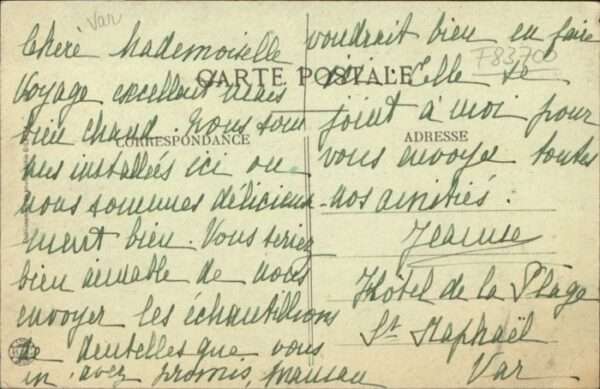 Var
F83700
CARTE POSTALE
CORRESPONDANCE
ADRESSE
Chère Mademoiselle
Voyage excellent mais
bien chaud. Nous som
mes installées ici ou
nous sommes délicieuse
ment bien. Vous seriez
bien aimable de nous
envoyer les échantillons
de dentelles que vous
m'avez promis, maman
voudrait bien en faire
ici. Elle se
joint à moi pour
vous envoyer toutes
nos amitiés.
Jeanne
Hôtel de la Plage
St Raphaël
Var